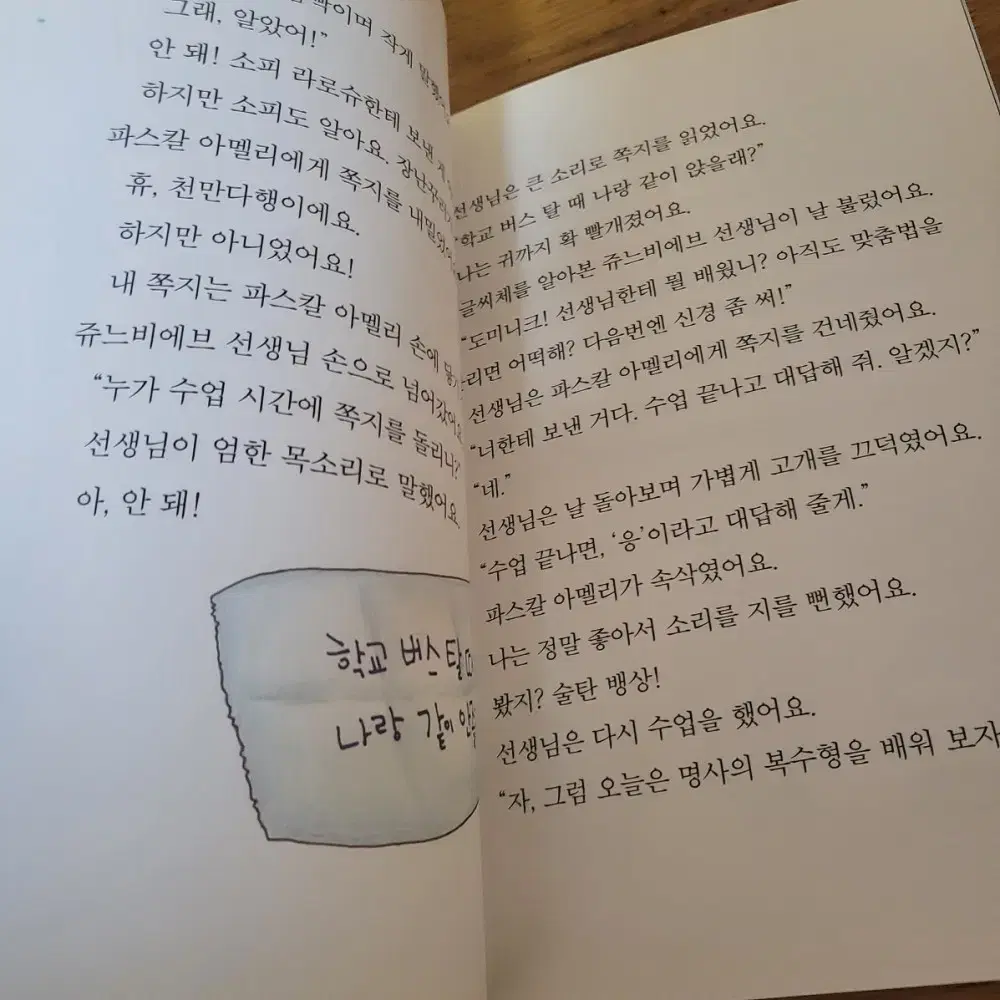 짝이며 작게 말했
그래, 알았어!”
안 돼! 소피 라로슈한테 보낸 게
하지만 소피도 알아요. 장난꾸러
파스칼 아멜리에게 쪽지를 내밀었어
휴, 천만다행이에요.
하지만 아니었어요!
내 쪽지는 파스칼 아멜리 손에
쥬느비에브 선생님 손으로 넘어갔어요
“누가 수업 시간에 쪽지를 돌리니?
선생님이 엄한 목소리로 말했어요.
아, 안 돼!
학교 버스 탈
나랑 같이
선생님은 큰 소리로 쪽지를 읽었어요.
“학교 버스 탈 때 나랑 같이 앉을래?”
나는 귀까지 확 빨개졌어요.
글씨체를 알아본 쥬느비에브 선생님이 날 불렀어요.
“도미니크! 선생님한테 뭘 배웠니? 아직도 맞춤법을
리면 어떡해? 다음번엔 신경 좀 써!”
선생님은 파스칼 아멜리에게 쪽지를 건네줬어요.
“너한테 보낸 거다. 수업 끝나고 대답해 줘. 알겠지?”
“네.”
선생님은 날 돌아보며 가볍게 고개를 끄덕였어요.
“수업 끝나면, ‘응’이라고 대답해 줄게.”
파스칼 아멜리가 속삭였어요.
나는 정말 좋아서 소리를 지를 뻔했어요.
봤지? 술탄 뱅상!
선생님은 다시 수업을 했어요.
“자, 그럼 오늘은 명사의 복수형을 배워 보자